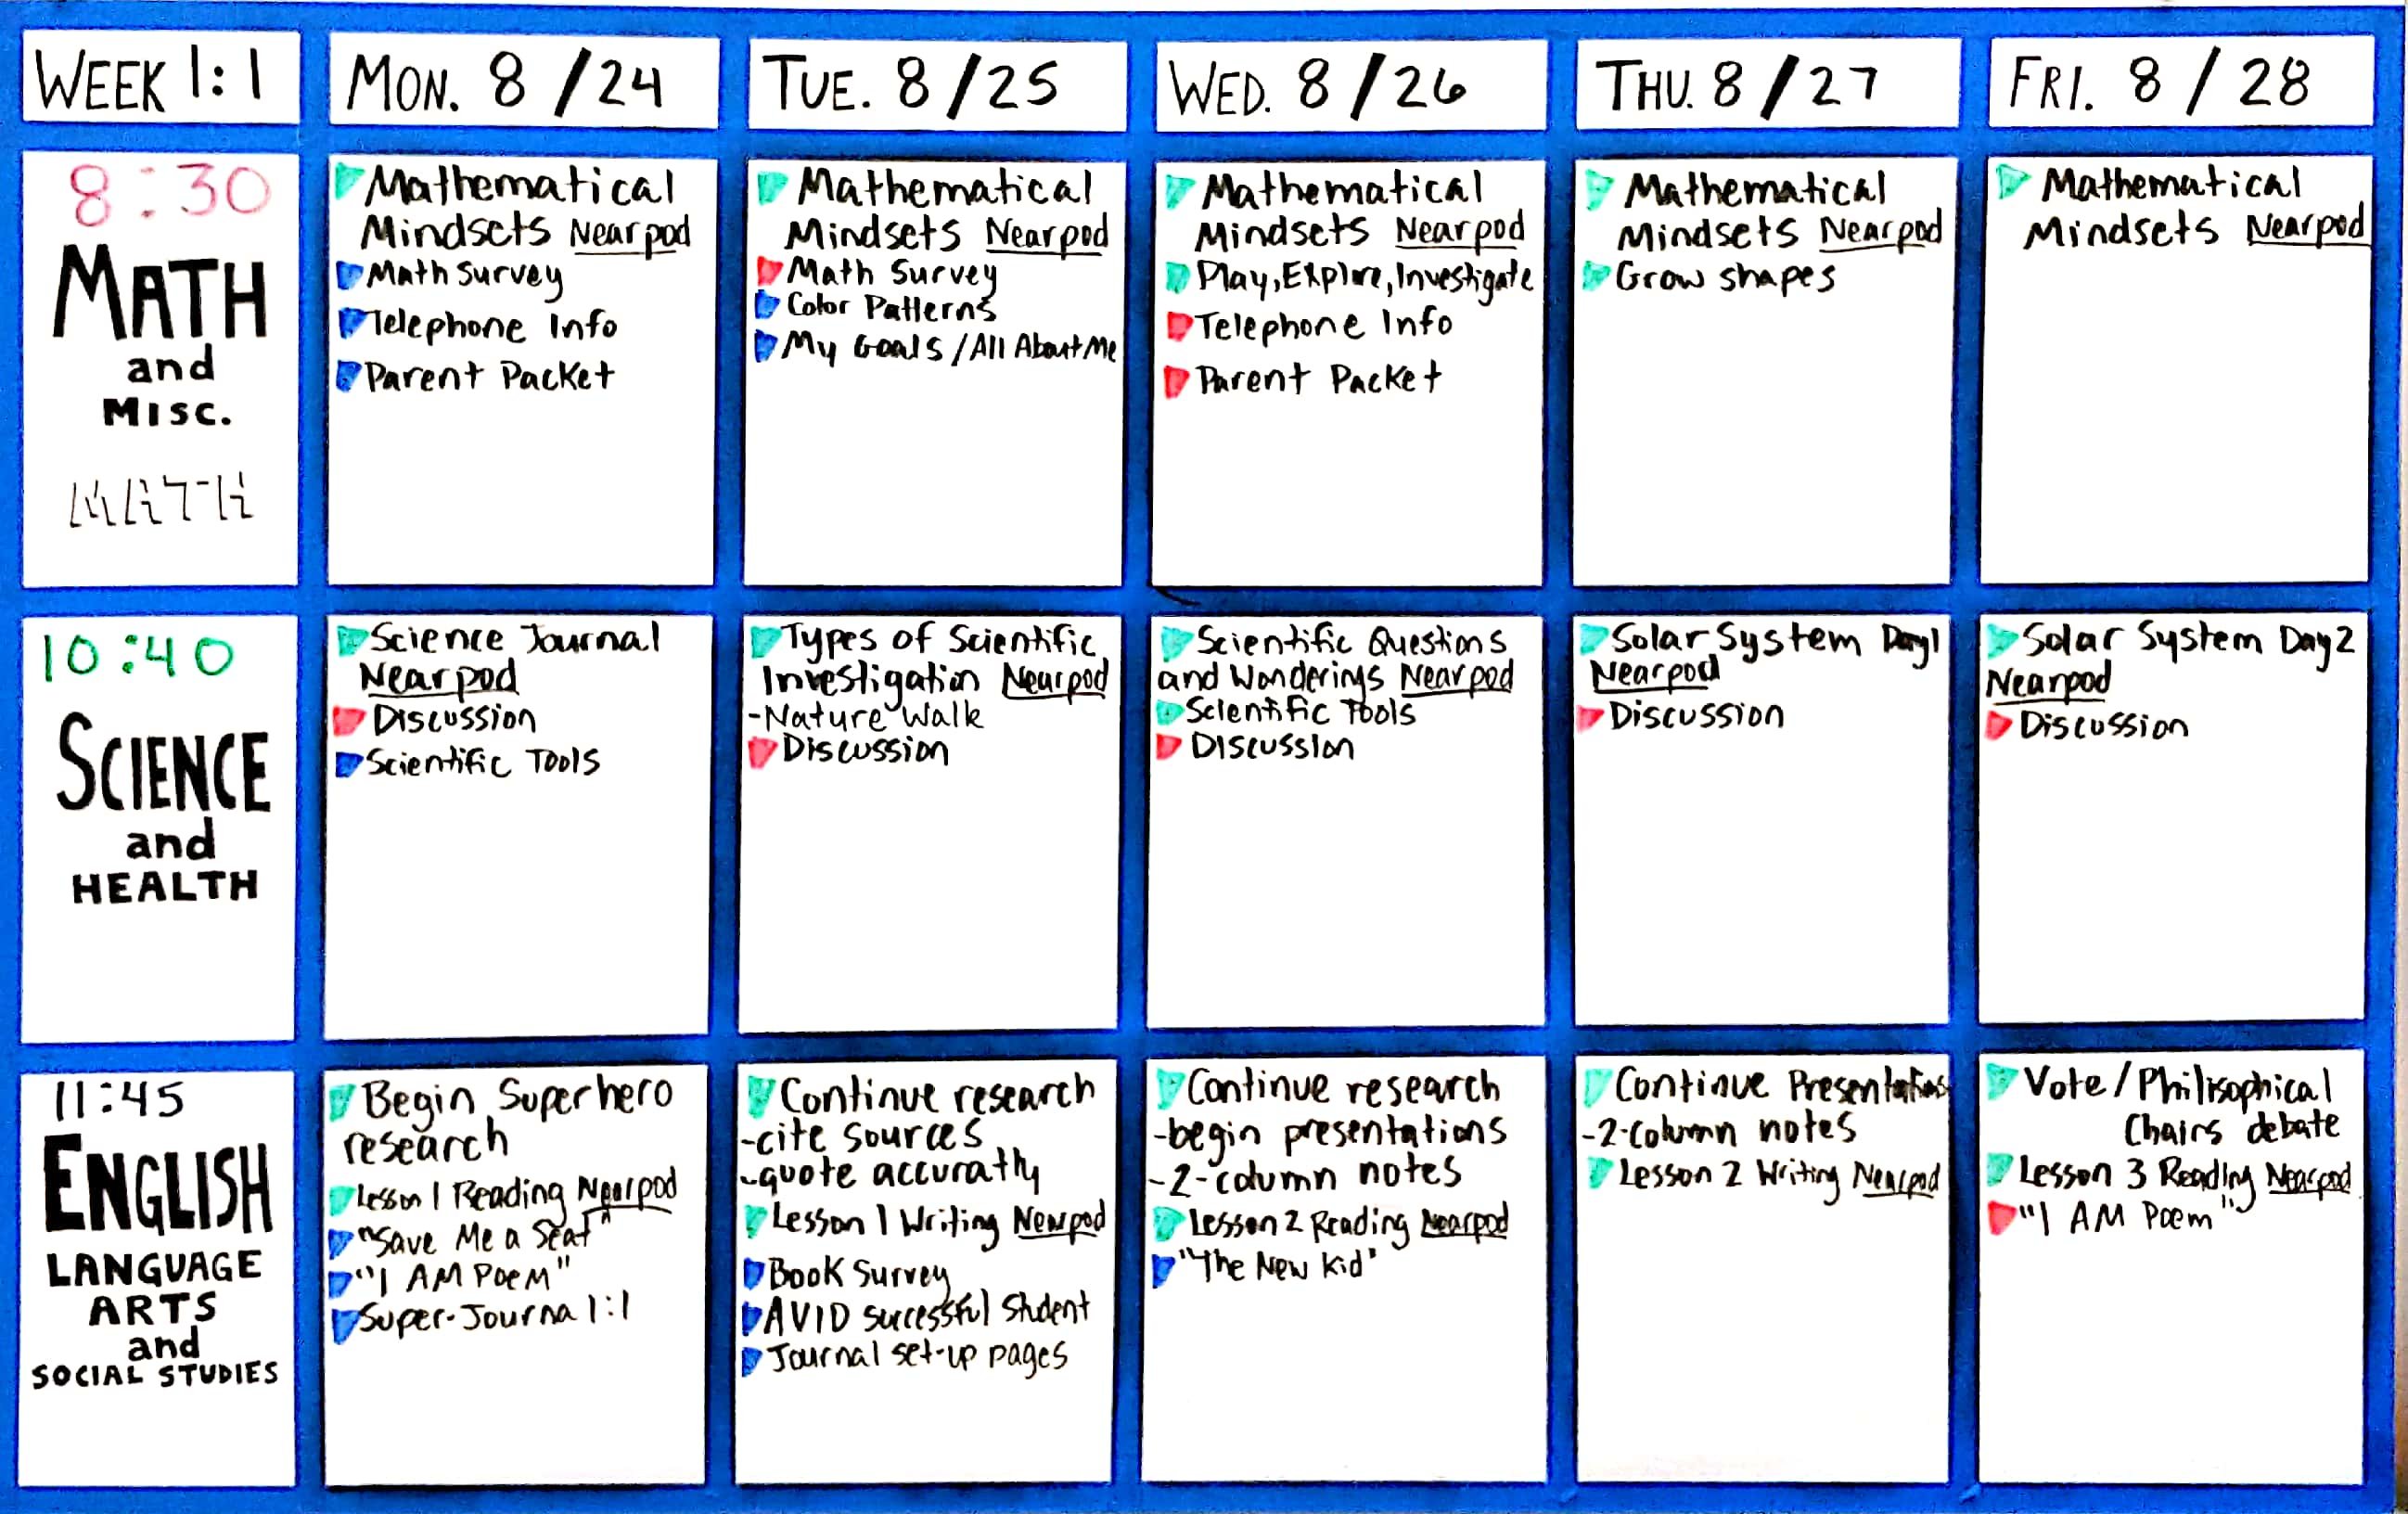 WEEK 1:1
MON. 8/24
TUE. 8/25
WED. 8/26
THU. 8/27
FRI. 8/28
8:30
MATH
and
MISC.
MATH
Mathematical
Mindsets Nearpod
Math Survey
Telephone Info
Parent Packet
Mathematical
Mindsets Nearpod
Math Survey
Color Patterns
My Goals/All About Me
Mathematical
Mindsets Nearpod
Play, Explore, Investigate
Telephone Info
Parent Packet
Mathematical
Mindsets Nearpod
Grow shapes
Mathematical
Mindsets Nearpod
10:40
SCIENCE
and
HEALTH
Science Journal
Nearpod
Discussion
Scientific Tools
Types of Scientific
Investigation Nearpod
-Nature Walk
Discussion
Scientific Questions
and Wonderings Nearpod
Scientific Tools
Discussion
Solar System Day 1
Nearpod
Discussion
Solar System Day 2
Nearpod
Discussion
11:45
ENGLISH
LANGUAGE
ARTS
and
SOCIAL STUDIES
Begin Superhero
research
Lesson 1 Reading Nearpod
"Save Me a Seat"
"I AM Poem"
Super-Journal 1:1
Continue research
-cite sources
-quote accuratly
Lesson 1 Writing Nearpod
Book Survey
AVID successful student
Journal set-up pages
Continue research
-begin presentations
-2-column notes
Lesson 2 Reading Nearpod
"The New Kid"
Continue Presentations
-2-column notes
Lesson 2 Writing Nearpod
Vote/Philisophical
Chairs debate
Lesson 3 Reading Nearpod
"I AM Poem"